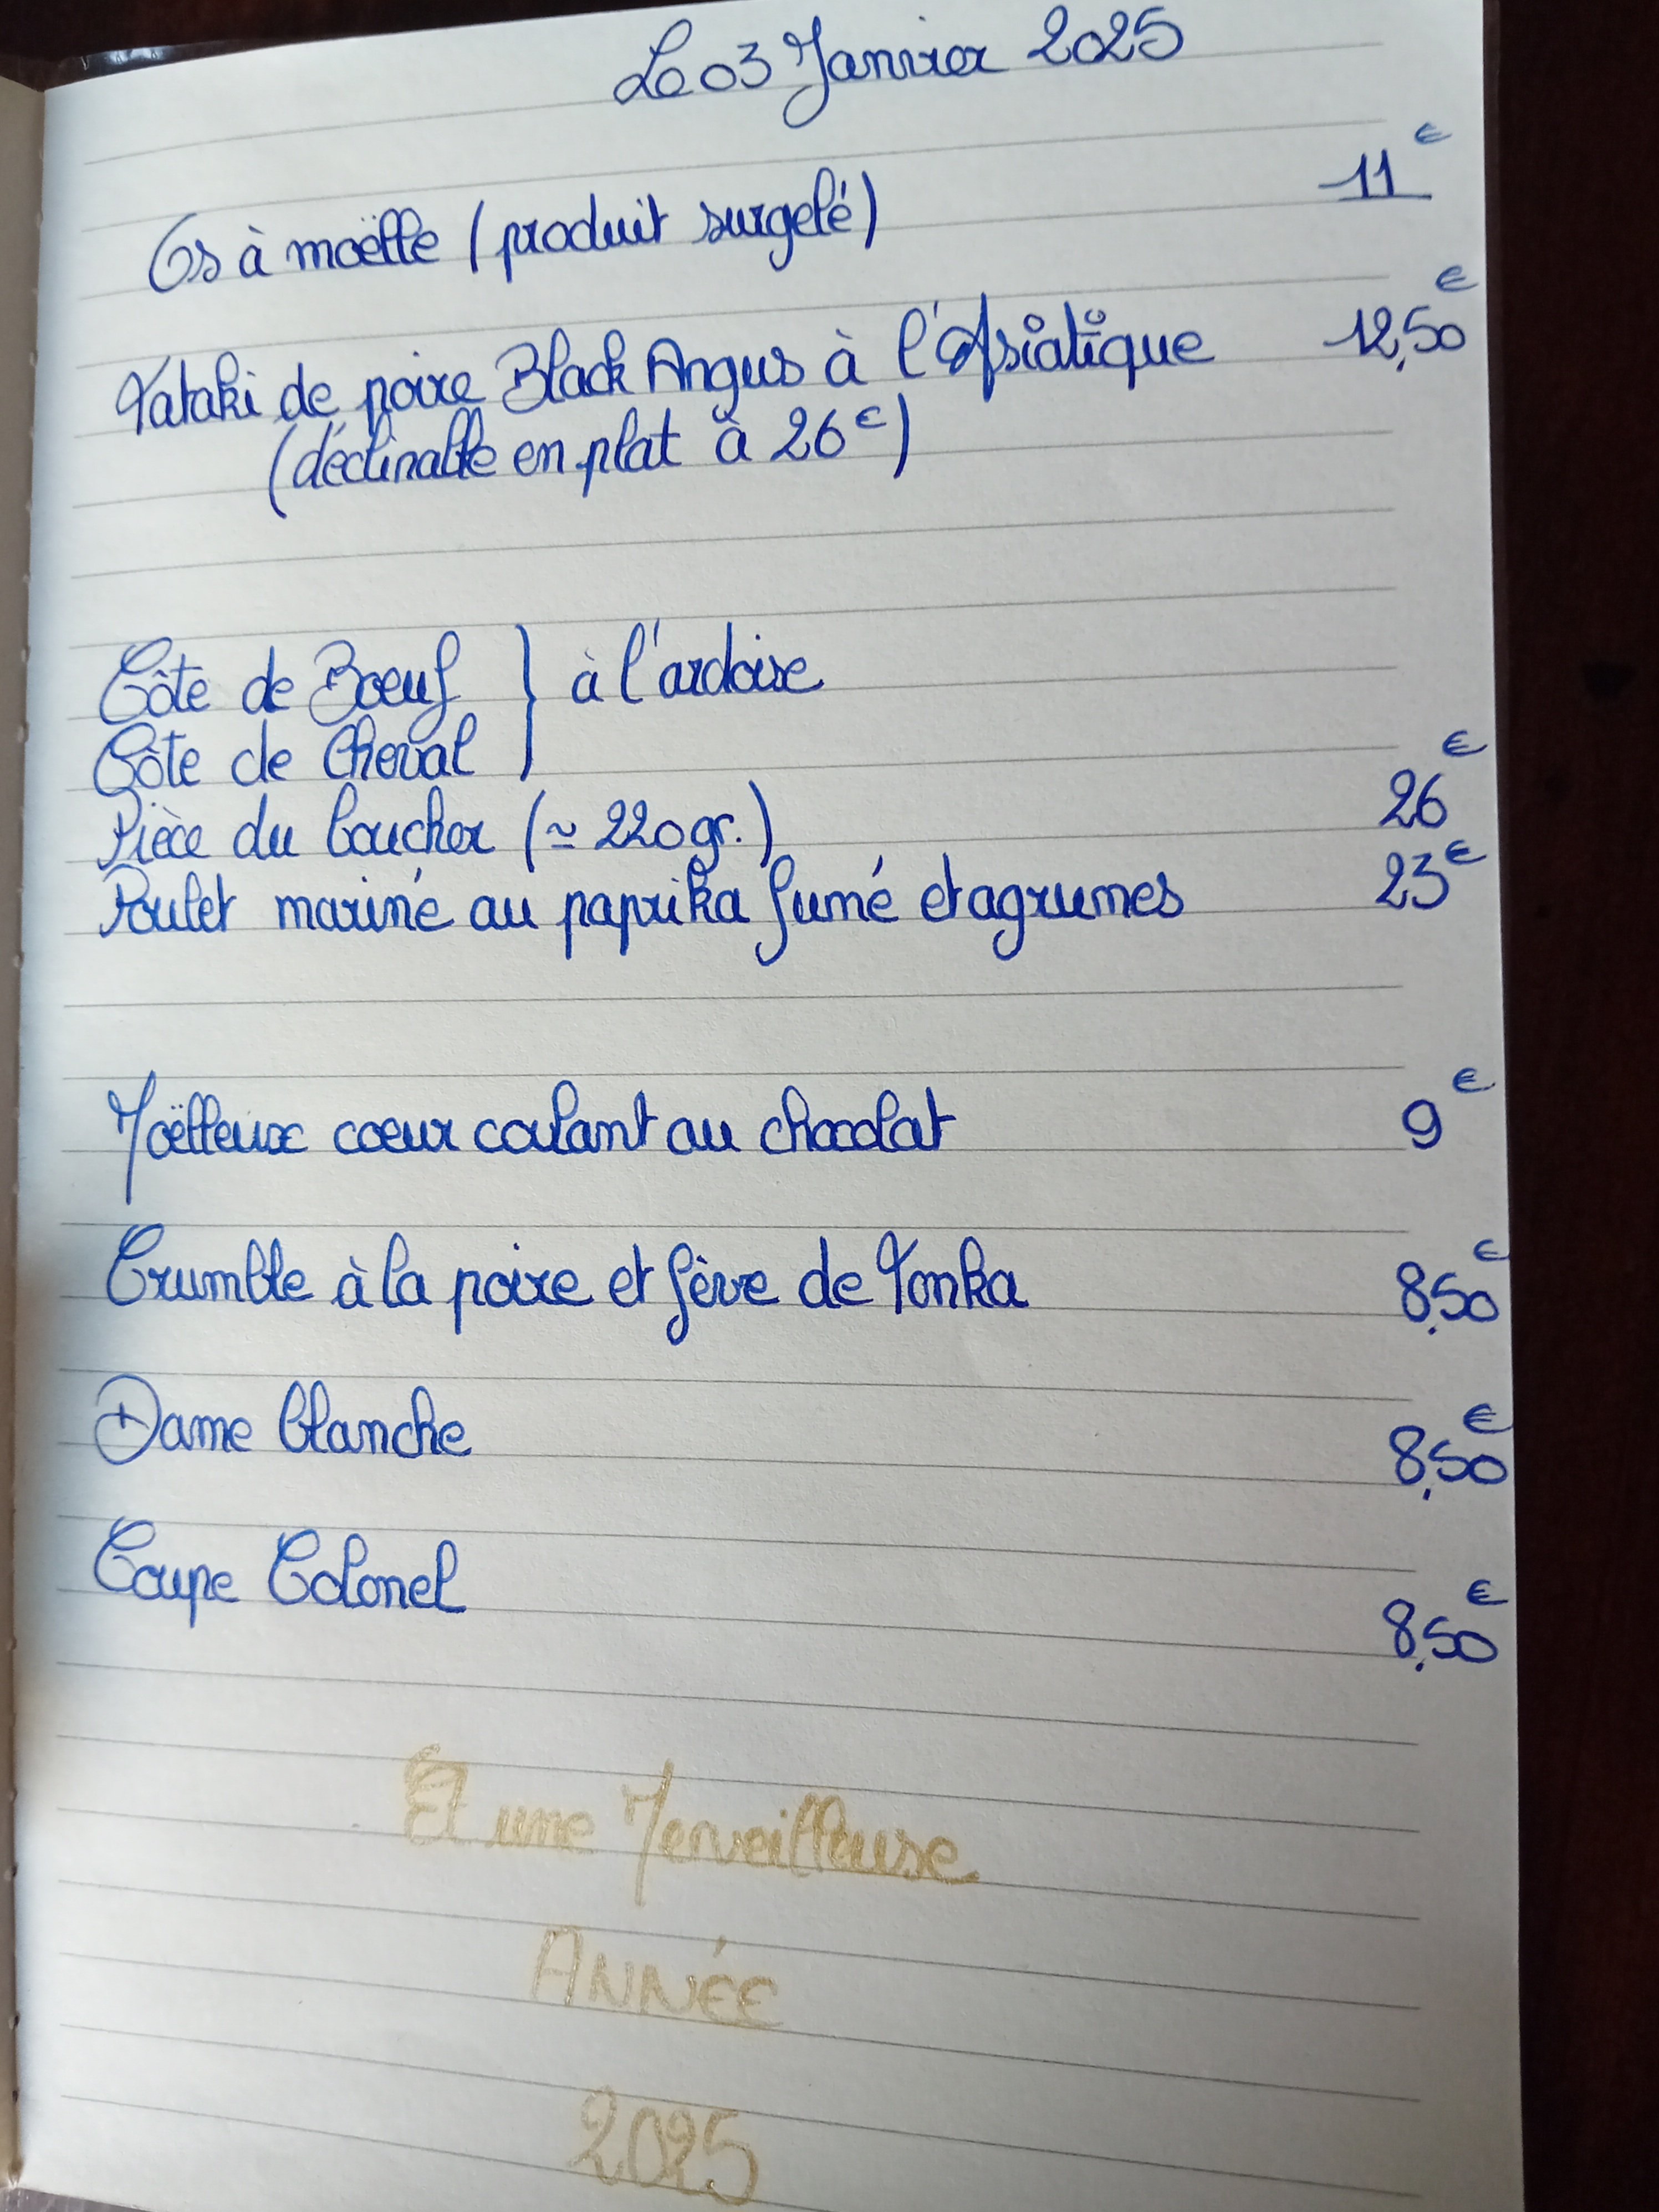 Le 03 Janvier 2025
Os à moëlle (produit surgelé) 11€
Tataki de poire Black Angus à l'Asiatique 12,50€
(déclinable en plat à 26€)
Côte de Boeuf } à l'ardoise
Côte de Cheval
Pièce du boucher (≃ 220gr.) 26€
Poulet mariné au paprika fumé et agrumes 23€
Moëlleux coeur coulant au chocolat 9€
Crumble à la poire et fève de Tonka 8,50€
Dame blanche 8,50€
Coupe Colonel 8,50€
Et une Merveilleuse
ANNÉE
2025